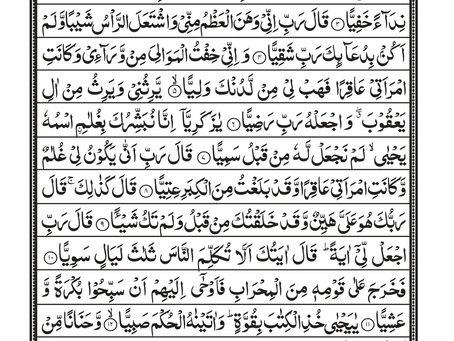 نِدَآءً خَفِیًّا ﴿۳﴾ قَالَ رَبِّ اِنِّیْ وَهَنَ الْعَظْمُ مِنِّیْ وَاشْتَعَلَ الرَّاْسُ شَیْبًا وَّلَمْ
اَكُنْۢ بِدُعَآئِكَ رَبِّ شَقِیًّا ﴿۴﴾ وَ اِنِّیْ خِفْتُ الْمَوَالِیَ مِنْ وَّرَآءِیْ وَكَانَتِ
امْرَاَتِیْ عَاقِرًا فَهَبْ لِیْ مِنْ لَّدُنْكَ وَلِیًّا ﴿۵﴾ یَّرِثُنِیْ وَیَرِثُ مِنْ اٰلِ
یَعْقُوْبَ ۖ وَ اجْعَلْهُ رَبِّ رَضِیًّا ﴿۶﴾ یٰزَكَرِیَّاۤ اِنَّا نُبَشِّرُكَ بِغُلٰمِ ۨاسْمُهٗ
یَحْیٰی ۙ لَمْ نَجْعَلْ لَّهٗ مِنْ قَبْلُ سَمِیًّا ﴿۷﴾ قَالَ رَبِّ اَنّٰی یَكُوْنُ لِیْ غُلٰمٌ
وَّكَانَتِ امْرَاَتِیْ عَاقِرًا وَّ قَدْ بَلَغْتُ مِنَ الْكِبَرِ عِتِیًّا ﴿۸﴾ قَالَ كَذٰلِكَ ۚ قَالَ
رَبُّكَ هُوَ عَلَیَّ هَیِّنٌ وَّ قَدْ خَلَقْتُكَ مِنْ قَبْلُ وَلَمْ تَكُ شَیْـًٔا ﴿۹﴾ قَالَ رَبِّ
اجْعَلْ لِّیْۤ اٰیَةً ؕ قَالَ اٰیَتُكَ اَلَّا تُكَلِّمَ النَّاسَ ثَلٰثَ لَیَالٍ سَوِیًّا ﴿۱۰﴾
فَخَرَجَ عَلٰی قَوْمِهٖ مِنَ الْمِحْرَابِ فَاَوْحٰۤی اِلَیْهِمْ اَنْ سَبِّحُوْا بُكْرَةً وَّ
عَشِیًّا ﴿۱۱﴾ یٰیَحْیٰی خُذِ الْكِتٰبَ بِقُوَّةٍ ؕ وَاٰتَیْنٰهُ الْحُكْمَ صَبِیًّا ﴿۱۲﴾ وَّحَنَانًا مِّنْ